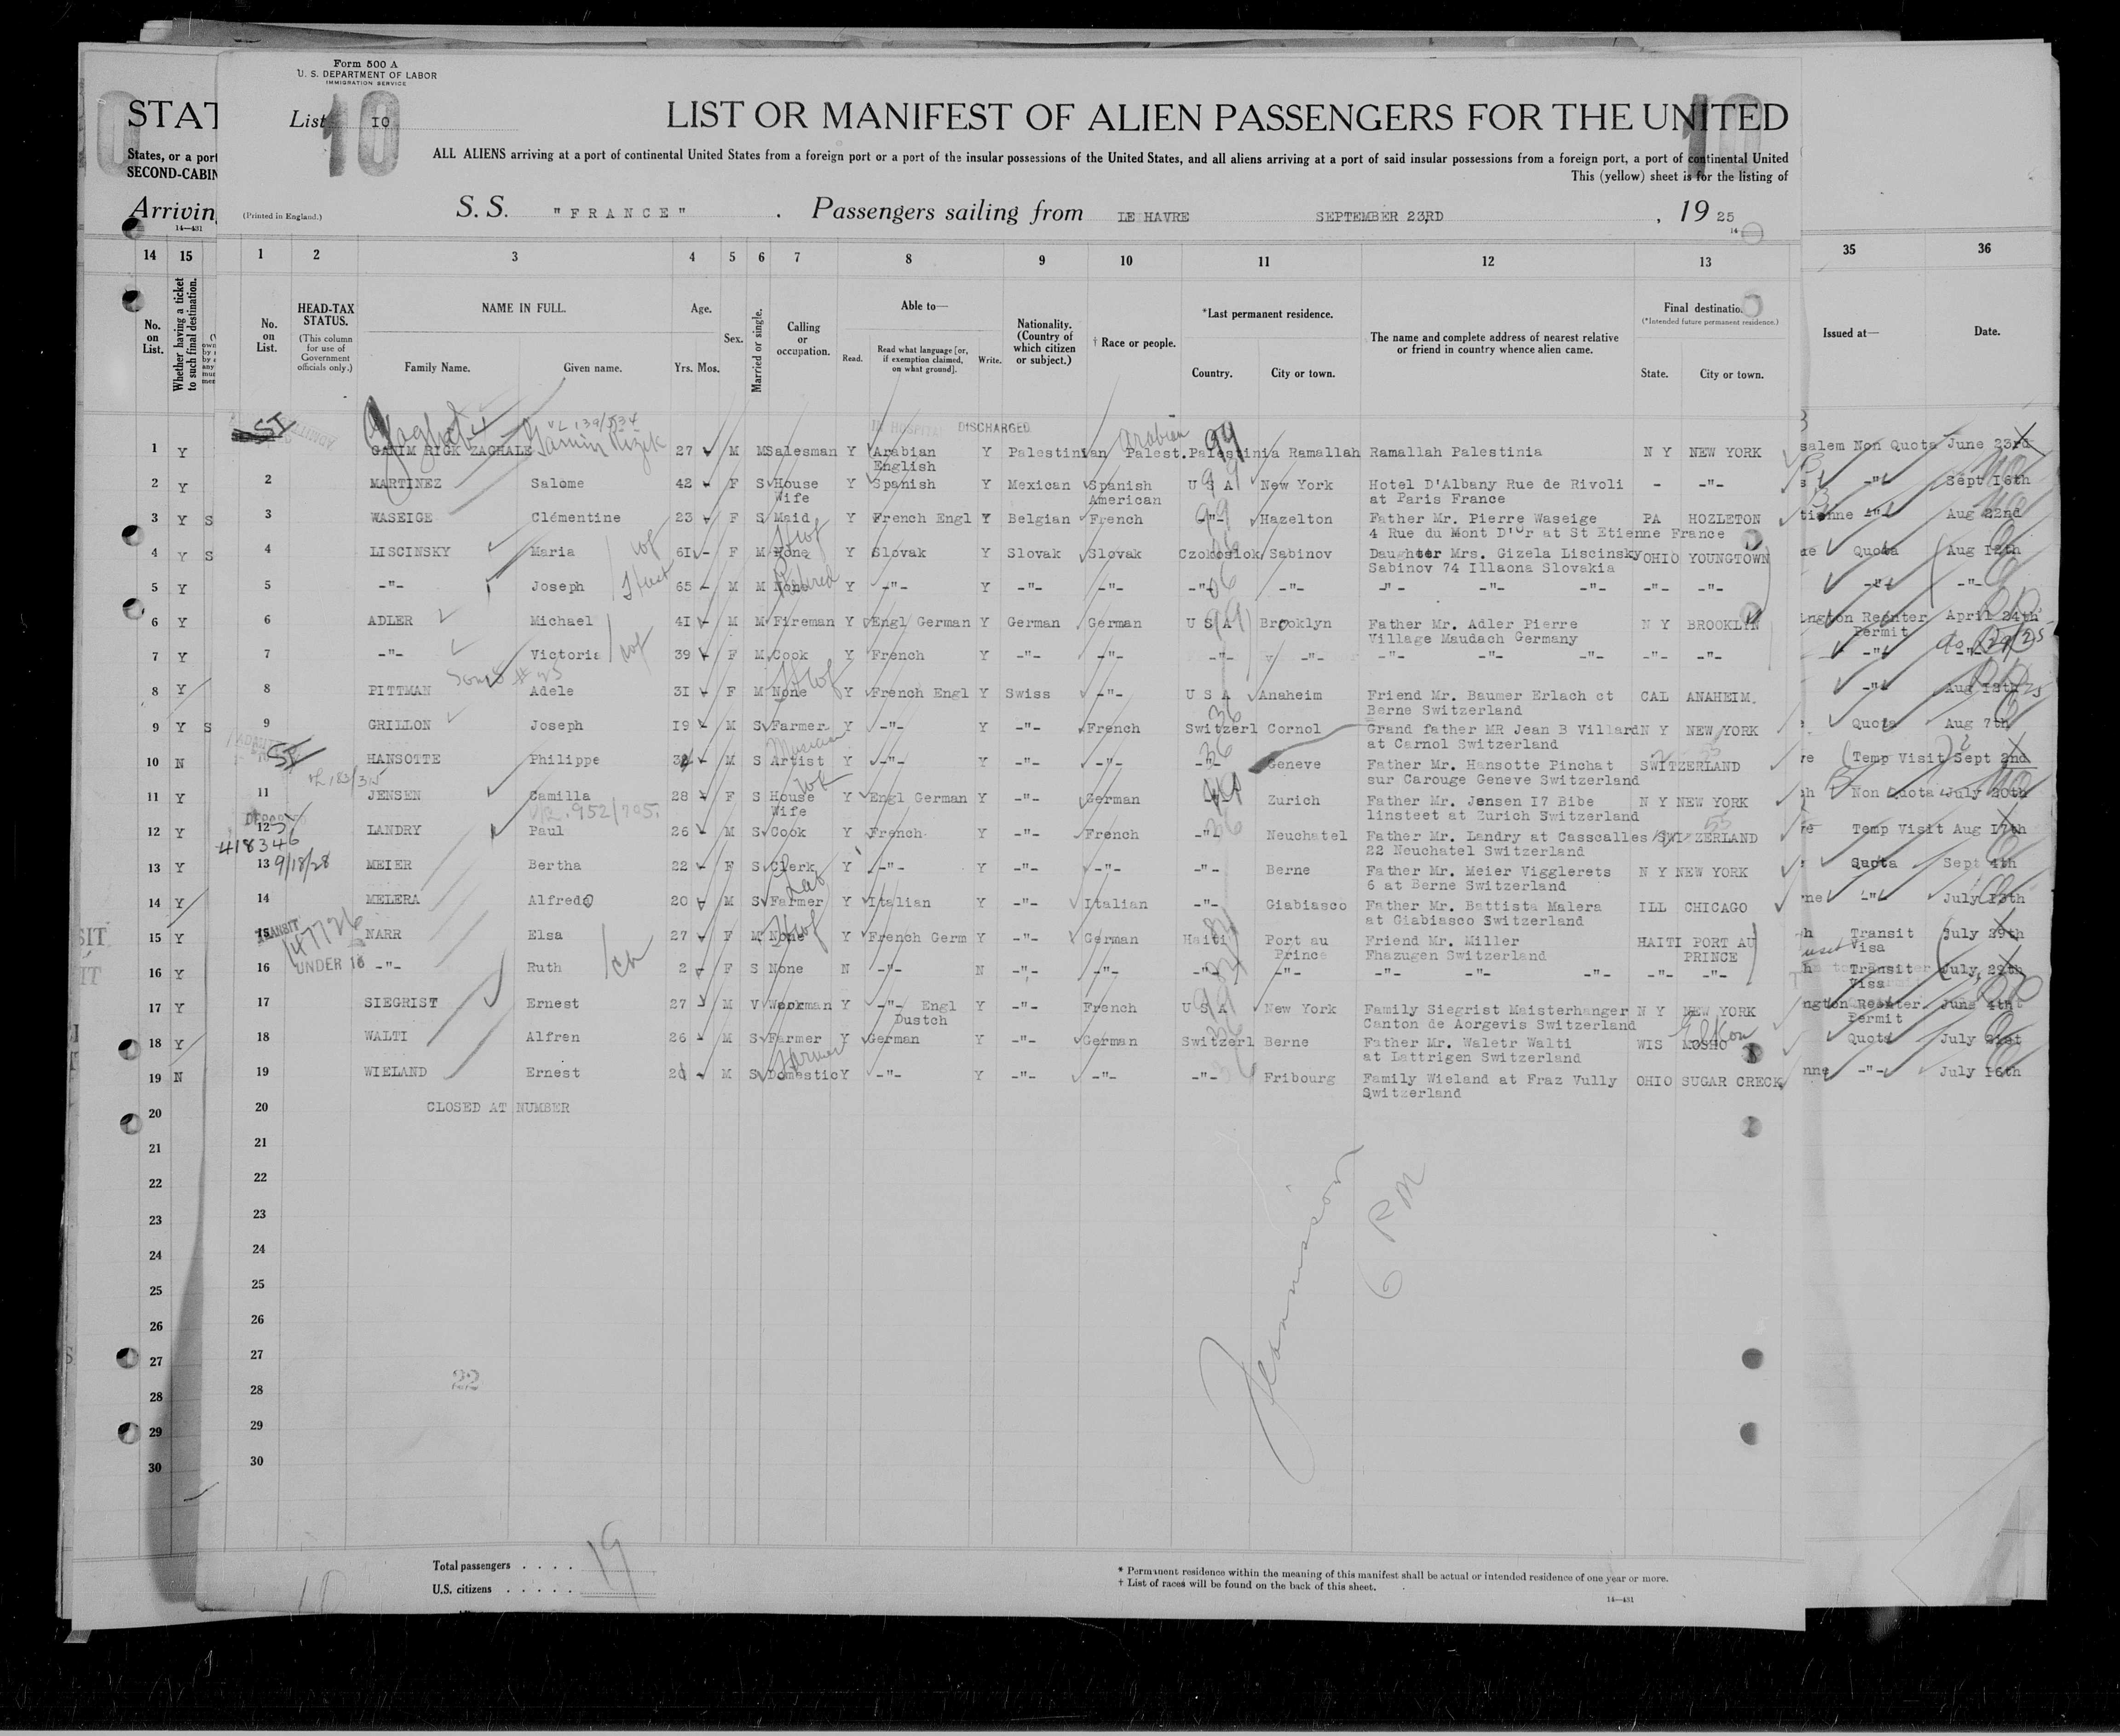 Form 500 A
U. S. DEPARTMENT OF LABOR
IMMIGRATION SERVICE
STAT
List 10
10
LIST OR MANIFEST OF ALIEN PASSENGERS FOR THE UNITED
10
States, or a port
SECOND-CABIN
ALL ALIENS arriving at a port of continental United States from a foreign port or a port of the insular possessions of the United States, and all aliens arriving at a port of said insular possessions from a foreign port, a port of continental United
This (yellow) sheet is for the listing of
Arriving
(Printed in England.)
S. S. "FRANCE" . Passengers sailing from LE HAVRE SEPTEMBER 23RD , 19 25
14—431
14 15 1 2 3 4 5 6 7 8 9 10 11 12 13 35 36
No. on List.
Whether having a ticket to such final destination.
No. on List.
HEAD-TAX STATUS.
(This column for use of Government officials only.)
NAME IN FULL.
Family Name. Given name.
Age.
Yrs. Mos.
Sex.
Married or single.
Calling or occupation.
Able to—
Read. Read what language [or, if exemption claimed, on what ground]. Write.
Nationality. (Country of which citizen or subject.)
† Race or people.
*Last permanent residence.
Country. City or town.
The name and complete address of nearest relative or friend in country whence alien came.
Final destination
(*Intended future permanent residence.)
State. City or town.
Issued at— Date.
IN HOSPITAL DISCHARGED
Arabian
1 Y GANIM RIGK ZAGHALE 27 M M Salesman Y Arabian Y Palestinian Palest. Palestinia Ramallah Ramallah Palestinia N Y NEW YORK salem Non Quota June 23rd
English
2 Y 2 MARTINEZ Salome 42 F S House Y Spanish Y Mexican Spanish U S A New York Hotel D'Albany Rue de Rivoli - -"- -"- Sept 16th
Wife American at Paris France
3 Y S 3 WASEIGE Clémentine 23 F S Maid Y French Engl Y Belgian French -"- Hazelton Father Mr. Pierre Waseige PA HOZLETON tienne -"- Aug 22nd
4 Rue du Mont D'Or at St Etienne France
4 Y S 4 LISCINSKY Maria wf 61 F M None Y Slovak Y Slovak Slovak Czokoslok Sabinov Daughter Mrs. Gizela Liscinsky OHIO YOUNGTOWN Quota Aug 12th
Sabinov 74 Illaona Slovakia
5 Y 5 -"- Joseph Hust 65 M M None Retired Y -"- Y -"- -"- -"- -"- -"- -"- -"- -"- -"- -"- -"-
6 Y 6 ADLER Michael 41 M M Fireman Y Engl German Y German German U S A Brooklyn Father Mr. Adler Pierre N Y BROOKLYN ington Reenter April 24th
Village Maudach Germany Permit
7 Y 7 -"- Victoria wf 39 F M Cook Y French Y -"- -"- -"- -"- -"- -"- -"- -"- -"- -"-
8 Y 8 PITTMAN Adele 31 F M None Y French Engl Y Swiss -"- U S A Anaheim Friend Mr. Baumer Erlach ct CAL ANAHEIM. -"- Aug 18th
Berne Switzerland
9 Y S 9 GRILLON Joseph 19 M S Farmer Y -"- Y -"- French Switzerl Cornol Grand father MR Jean B Villard N Y NEW YORK Quota Aug 7th
at Carnol Switzerland
10 N HANSOTTE Philippe M S Artist Musician Y -"- Y -"- -"- -"- Geneve Father Mr. Hansotte Pinchat SWITZERLAND Temp Visit Sept 2nd
sur Carouge Geneve Switzerland
11 Y 11 JENSEN Camilla 28 F S House Y Engl German Y -"- German -"- Zurich Father Mr. Jensen 17 Bibe N Y NEW YORK Non Quota July 20th
Wife linsteet at Zurich Switzerland
12 Y 12 LANDRY Paul 26 M S Cook Y French Y -"- French -"- Neuchatel Father Mr. Landry at Casscalles SWITZERLAND Temp Visit Aug 17th
418346 22 Neuchatel Switzerland
13 Y 13 9/18/28 MEIER Bertha 22 F S Clerk Y -"- Y -"- -"- -"- Berne Father Mr. Meier Vigglerets N Y NEW YORK Quota Sept 4th
6 at Berne Switzerland
14 Y 14 MELERA Alfredo 20 M S Farmer Y Italian Y -"- Italian -"- Giabiasco Father Mr. Battista Malera ILL CHICAGO -"- July 13th
at Giabiasco Switzerland
TRANSIT
15 Y 15 NARR Elsa 27 F M None Y French Germ Y -"- German Haiti Port au Friend Mr. Miller HAITI PORT AU Transit July 29th
Prince Fhazugen Switzerland PRINCE Visa
UNDER 16
16 Y 16 -"- Ruth ch 2 F S None N -"- N -"- -"- -"- -"- -"- -"- -"- -"- -"- Transit July 29th
Visa
17 Y 17 SIEGRIST Ernest 27 M V Workman Y -"- Engl Y -"- French U S A New York Family Siegrist Maisterhanger N Y NEW YORK ngton Reenter June 4th
Dustch Canton de Aorgevis Switzerland Permit
18 Y 18 WALTI Alfren 26 M S Farmer Y German Y -"- German Switzerl Berne Father Mr. Waletr Walti WIS MOSHO Quota July 21st
at Lattrigen Switzerland
19 N 19 WIELAND Ernest 20 M S Domestic Farmer Y -"- Y -"- -"- -"- Fribourg Family Wieland at Fraz Vully OHIO SUGAR CRECK nne -"- July 16th
Switzerland
20 20 CLOSED AT NUMBER
21 21
22 22
23 23
24 24
25 25
26 26
27 27
28 28
29 29
30 30
22
6 PM
Total passengers . . . . 19
U.S. citizens . . . . .
* Permanent residence within the meaning of this manifest shall be actual or intended residence of one year or more.
† List of races will be found on the back of this sheet.
14—431